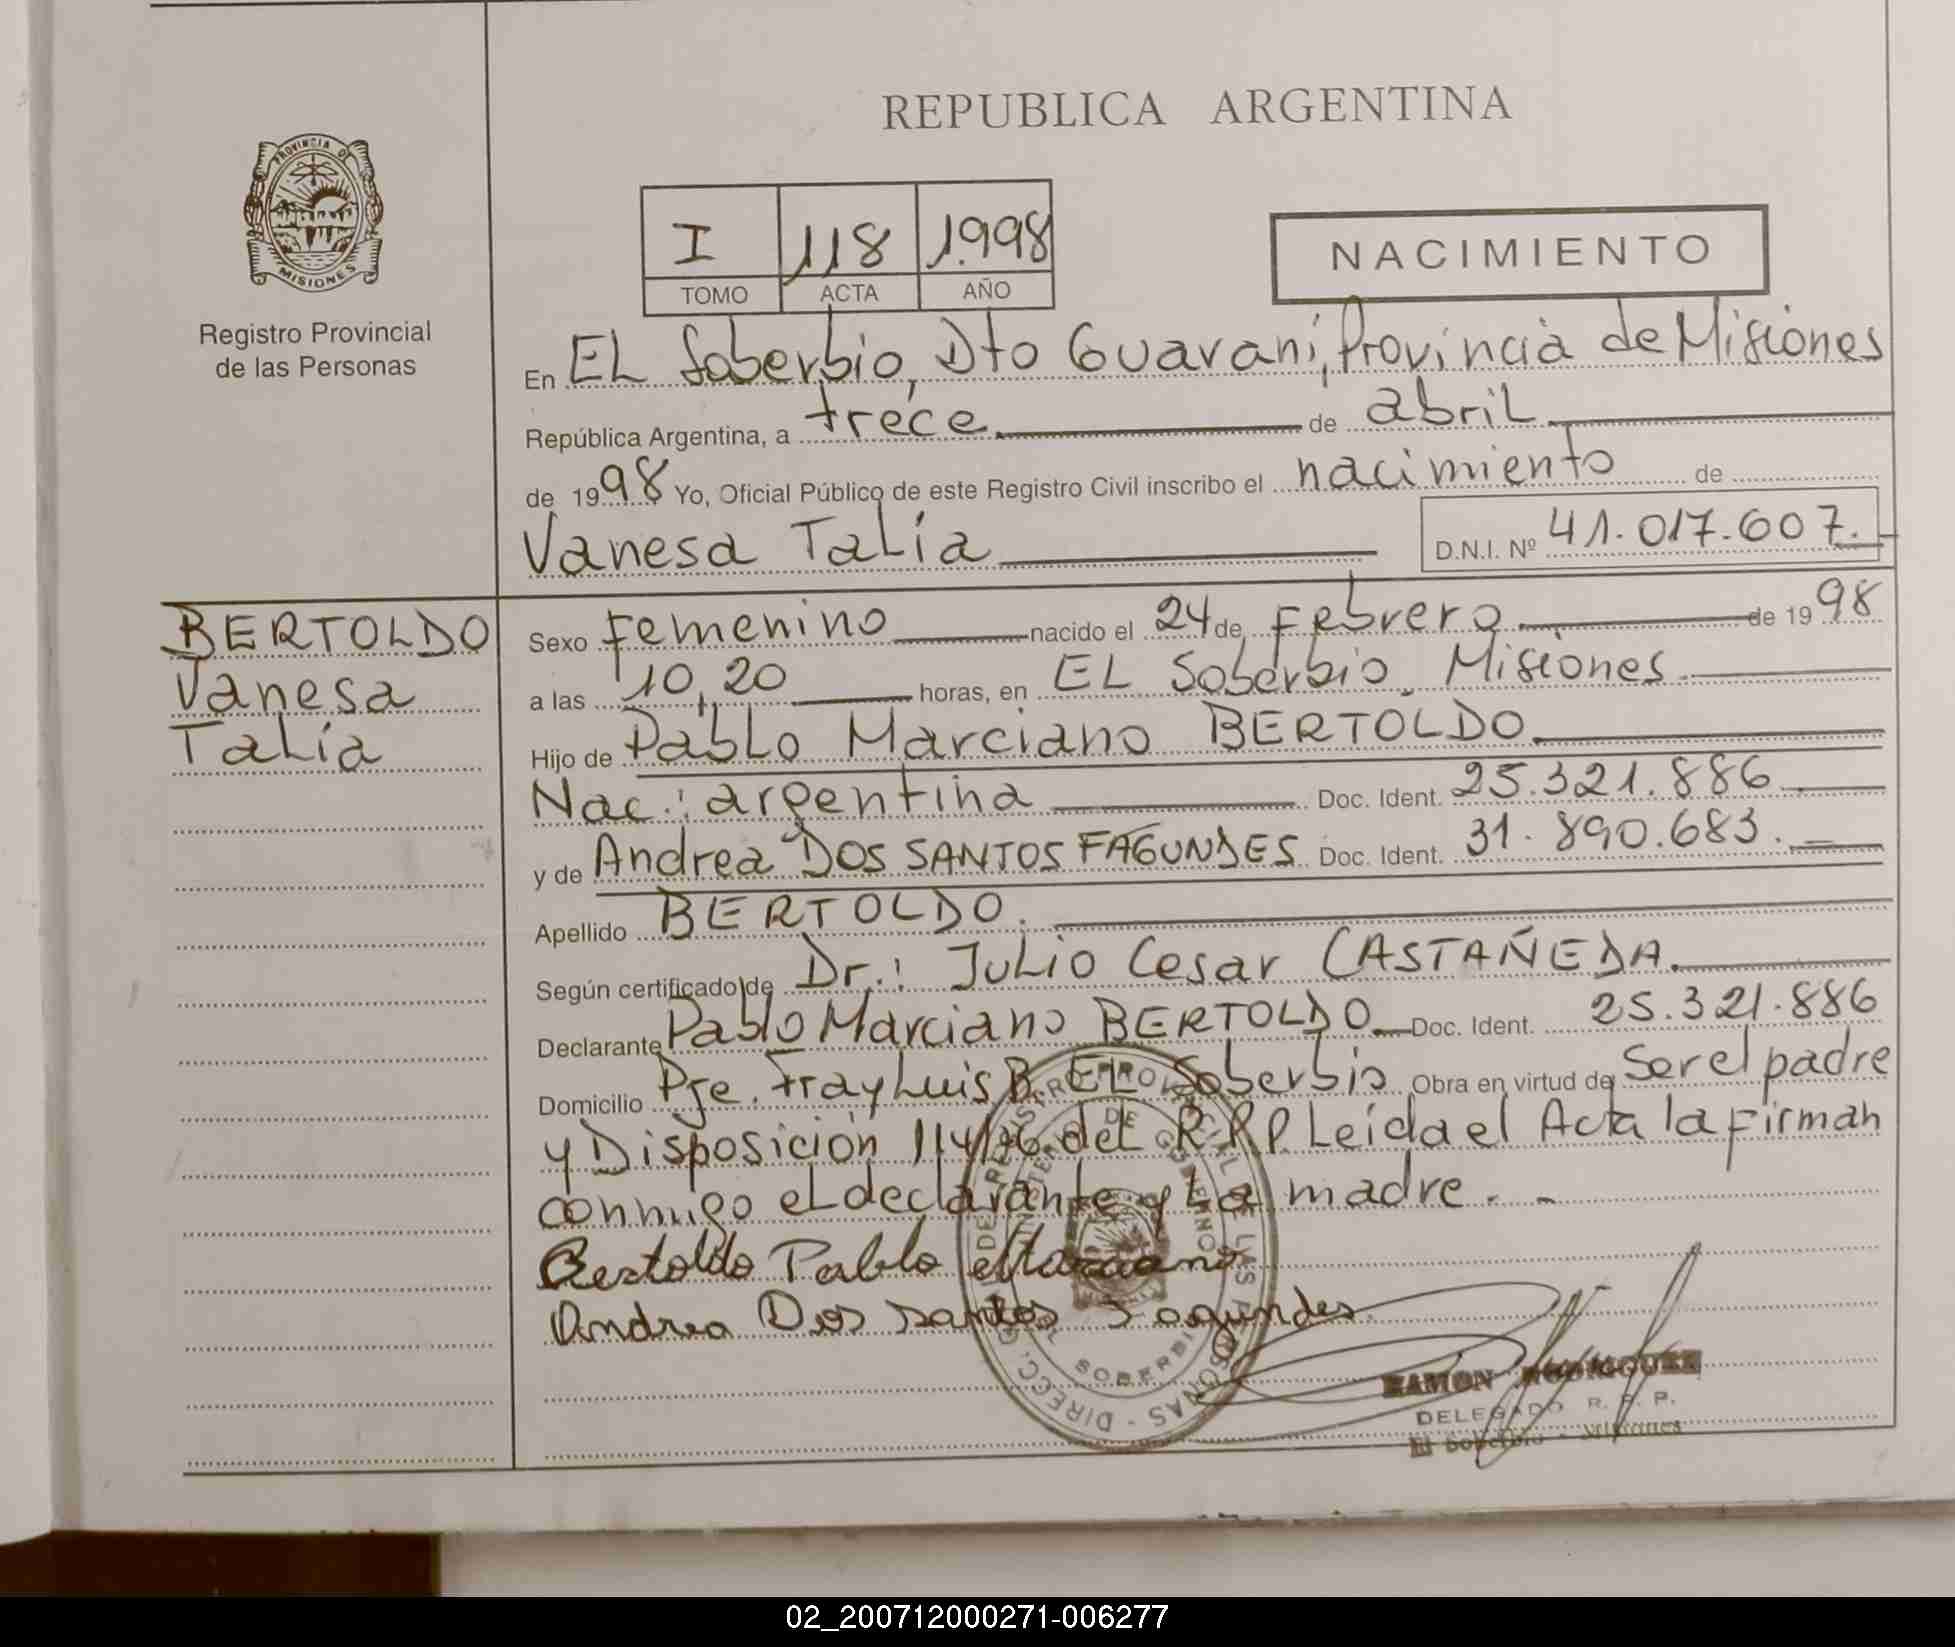 REPUBLICA ARGENTINA
PROVINCIA DE
MISIONES
Registro Provincial
de las Personas
I 118 1.998
TOMO ACTA AÑO
NACIMIENTO
En EL Soberbio, Dto Guaraní, Provincia de Misiones
República Argentina, a trece de abril
de 1998 Yo, Oficial Público de este Registro Civil inscribo el nacimiento de
Vanesa Talía D.N.I. Nº 41.017.607.
BERTOLDO
Vanesa
Talía
Sexo Femenino nacido el 24 de Febrero de 1998
a las 10,20 horas, en EL Soberbio, Misiones
Hijo de Pablo Marciano BERTOLDO
Nac.: argentina Doc. Ident. 25.321.886
y de Andrea DOS SANTOS FAGUNDES Doc. Ident. 31.890.683.
Apellido BERTOLDO.
Según certificado de Dr.: Julio Cesar CASTAÑEDA.
Declarante Pablo Marciano BERTOLDO Doc. Ident. 25.321.886
Domicilio Pje. Fray Luis B. EL Soberbio Obra en virtud de Ser el padre
y Disposición 114/96 del R.P.P. Leída el Acta la Firman
conmigo el declarante y la madre. -
Bertoldo Pablo Marciano
Andrea Dos santos Fagundes
DIRECC. G. DE REGISTRO PROVINCIAL DE LAS PERSONAS
MINISTERIO DE GOBIERNO
EL SOBERBIO
RAMON RODRIGUEZ
DELEGADO R. P. P.
El Soberbio - Misiones
02_200712000271-006277